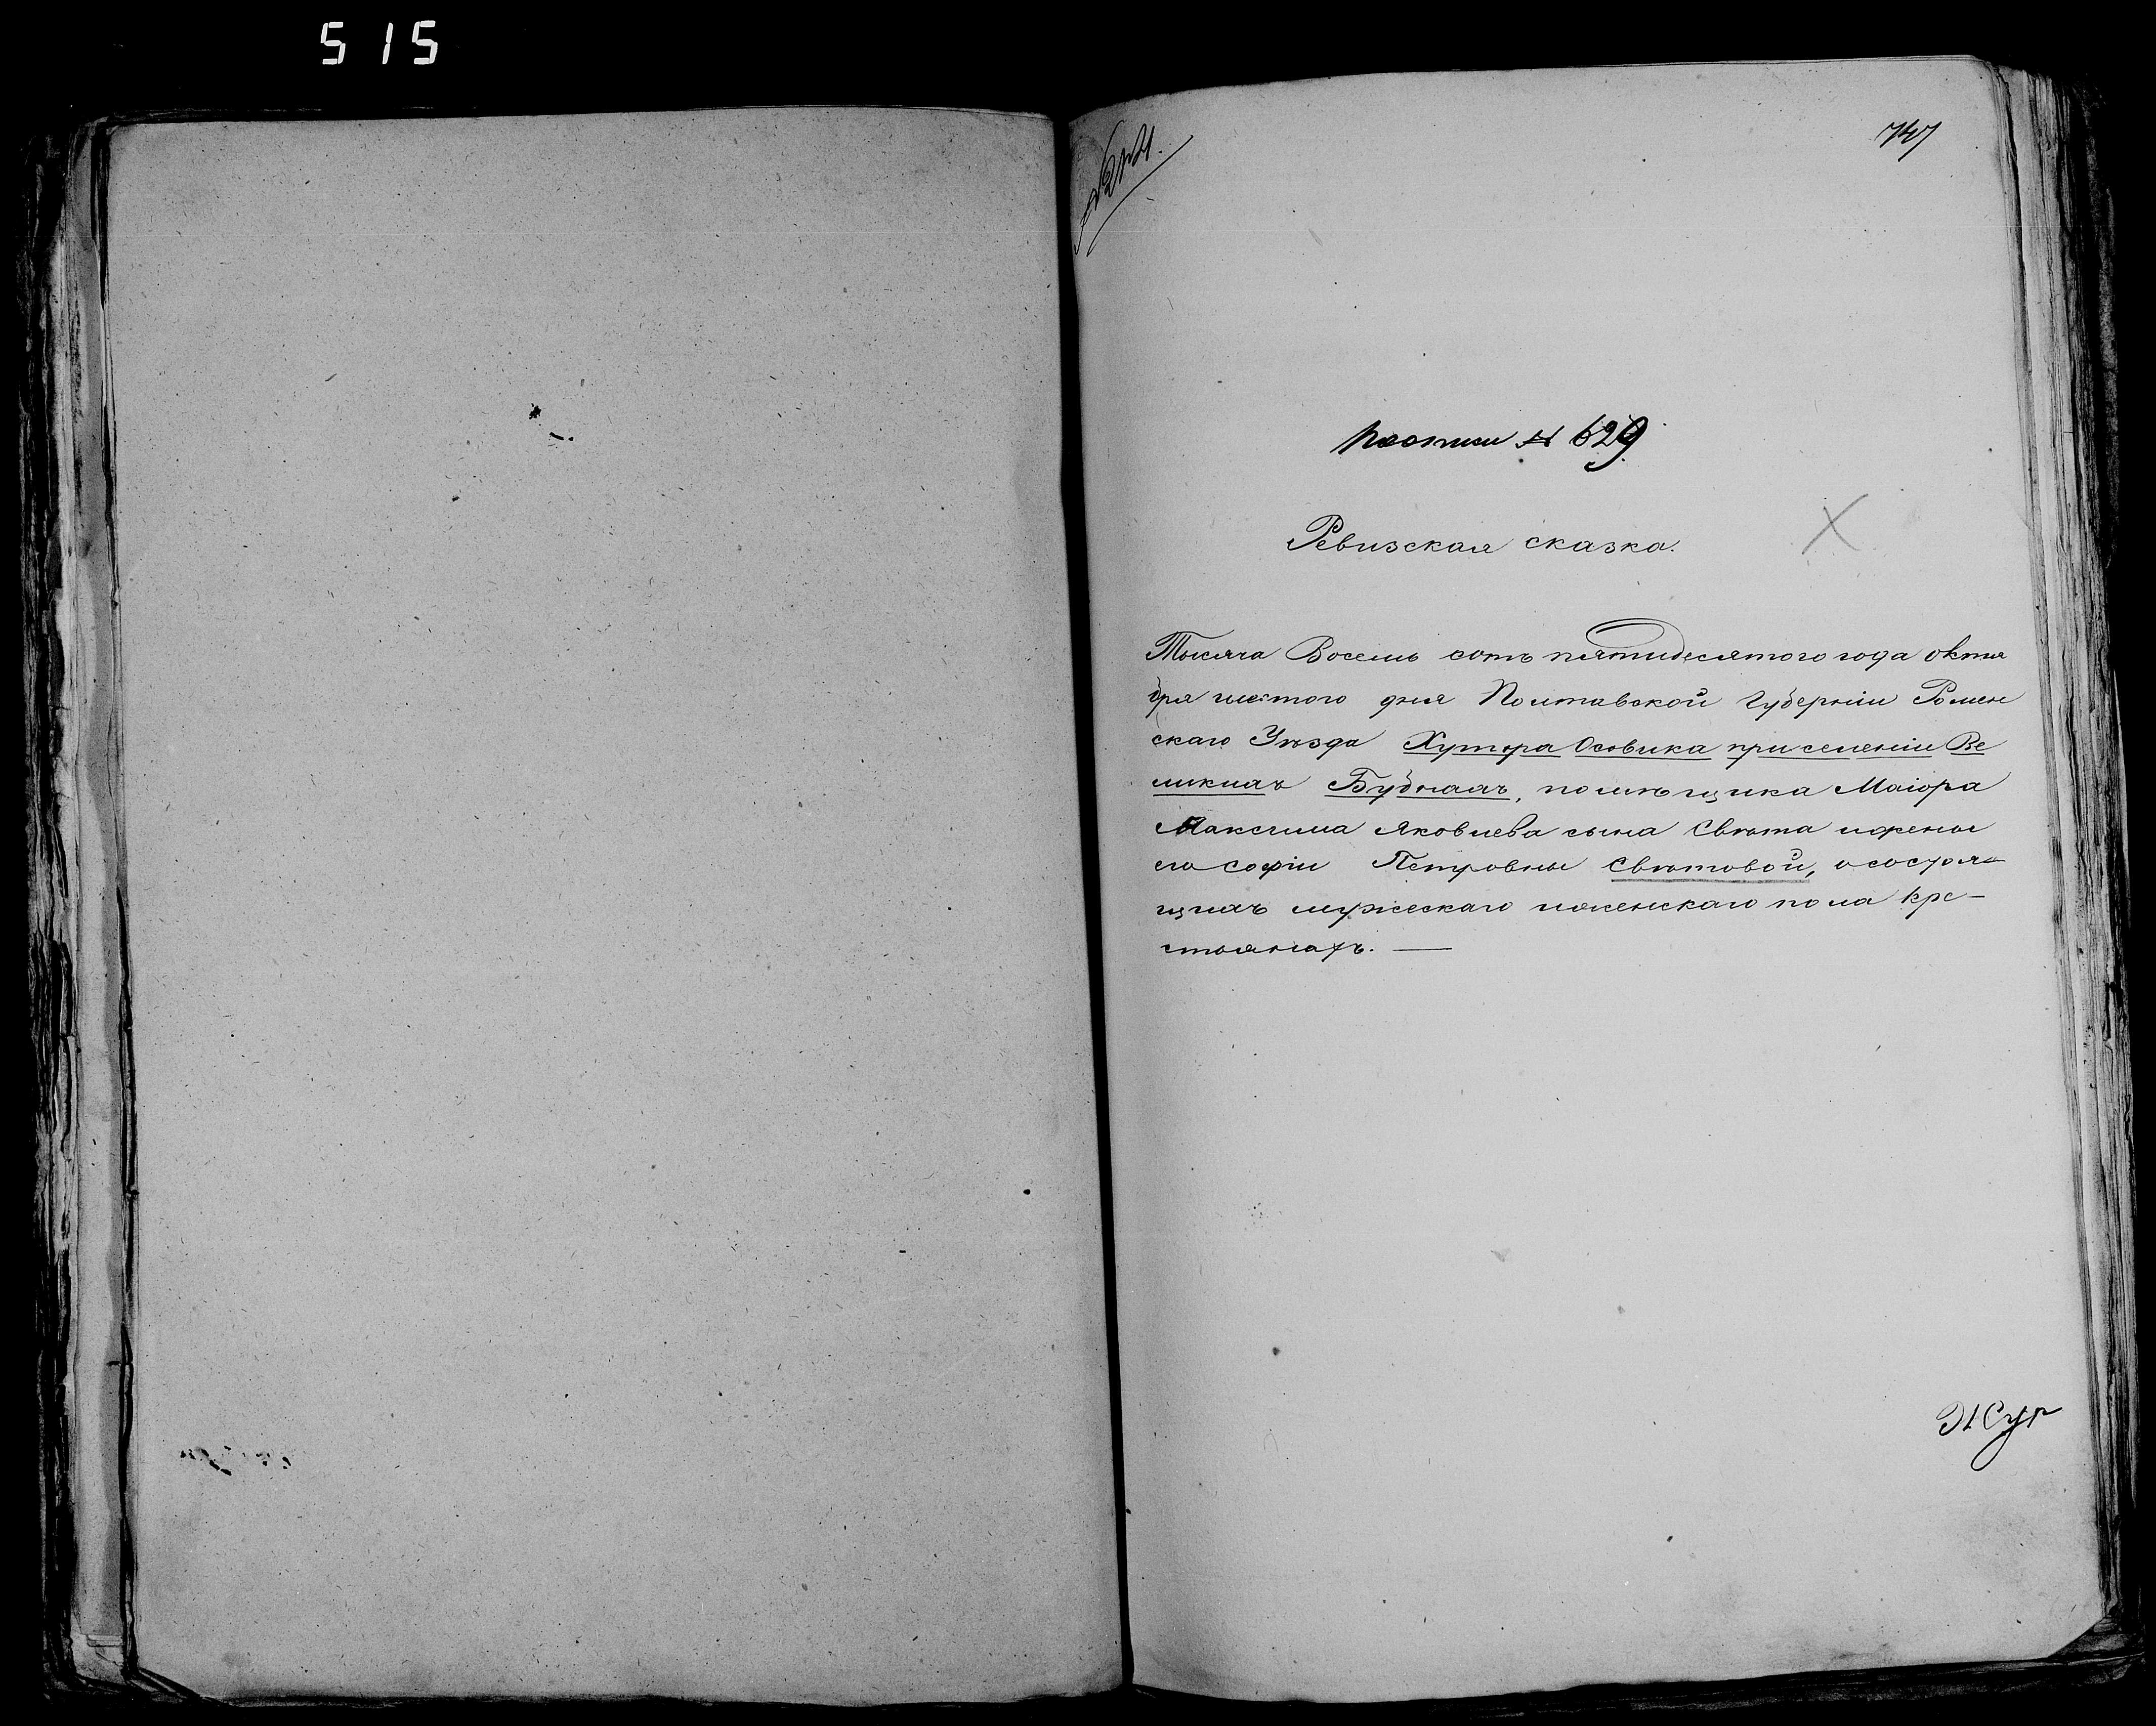 515
747
№ 629
Ревизская сказка.
Тысяча Восемь сотъ пятидесятого года октя
бря шестого дня Полтавской Губерніи Ромен
скаго Уѣзда Хутора Осовика при селеніи Ве
ликихъ Бубнахъ, помѣщика Маіора
Максима Яковлева сына Свѣта и жены
его Софіи Петровны Свѣтовой, о состоя
щихъ мужескаго и женскаго пола кре-
стьянахъ. —